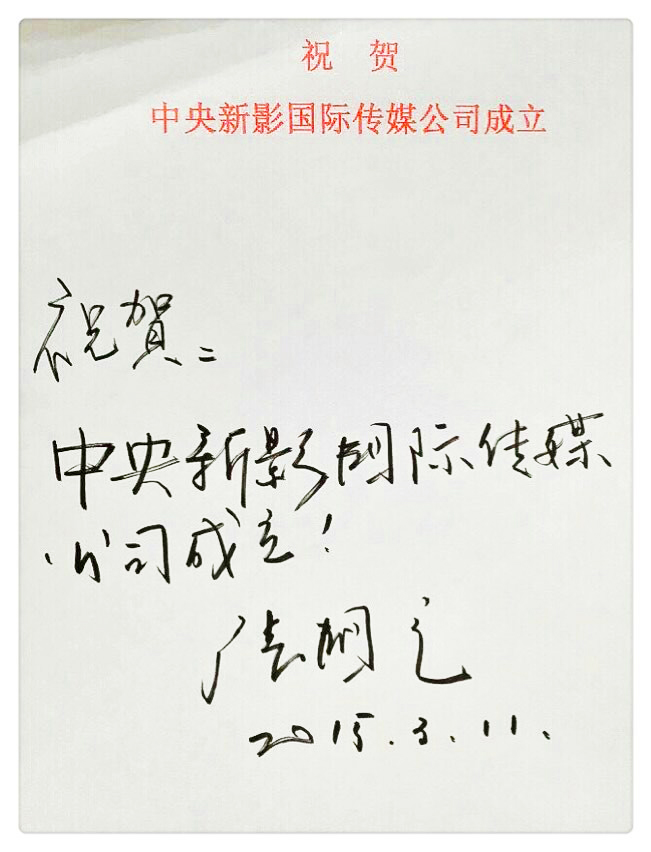 祝 贺
中央新影国际传媒公司成立
祝賀:
中央新影国际传媒
公司成立!
2015.3.11.